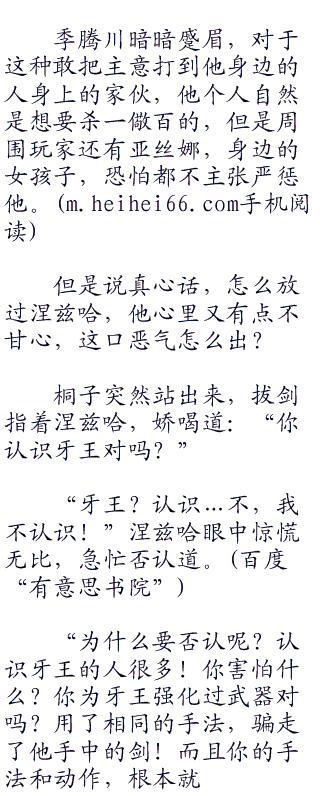 季腾川暗暗蹙眉，对于
这种敢把主意打到他身边的
人身上的家伙，他个人自然
是想要杀一儆百的，但是周
围玩家还有亚丝娜，身边的
女孩子，恐怕都不主张严惩
他。(m.heihei66.com手机阅
读)
但是说真心话，怎么放
过涅兹哈，他心里又有点不
甘心，这口恶气怎么出？
桐子突然站出来，拔剑
指着涅兹哈，娇喝道：“你
认识牙王对吗？”
“牙王？认识…不，我
不认识！”涅兹哈眼中惊慌
无比，急忙否认道。(百度
“有意思书院”)
“为什么要否认呢？认
识牙王的人很多！你害怕什
么？你为牙王强化过武器对
吗？用了相同的手法，骗走
了他手中的剑！而且你的手
法和动作，根本就